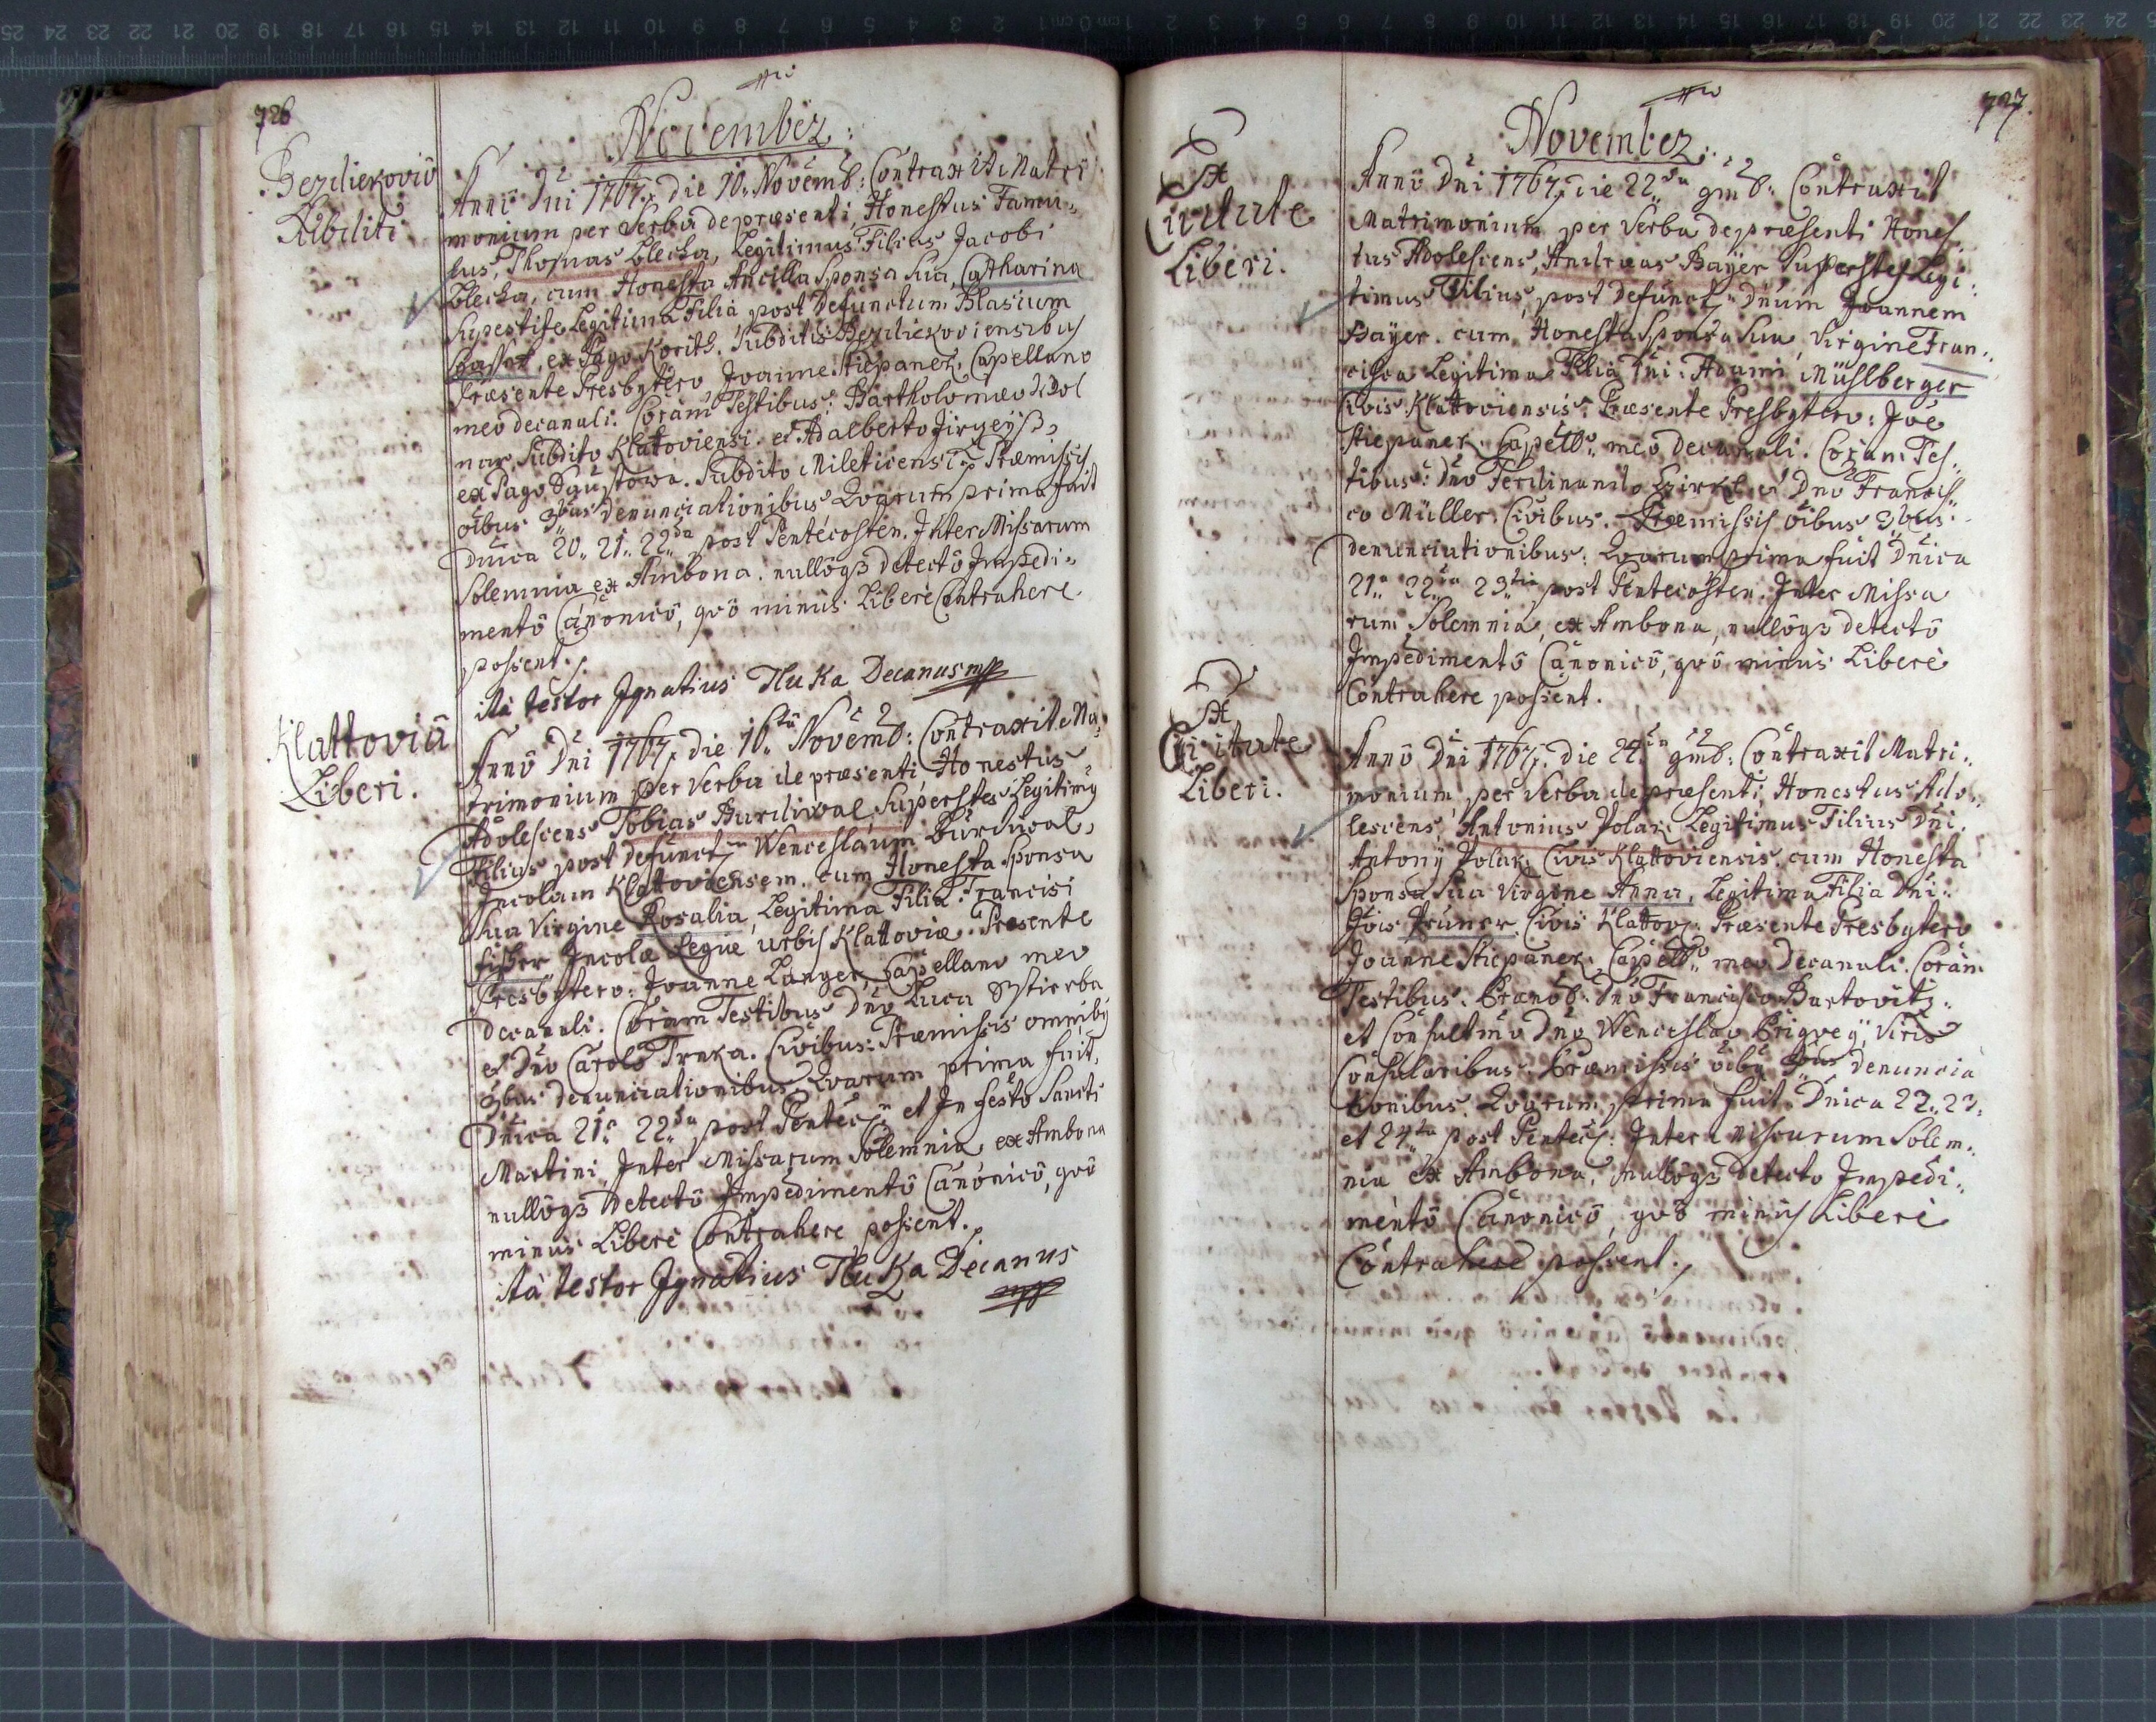 726
November.
Bezdiekoviō
Abiliti
Anno Dni 1767. die 10. Novemb: Contraxit Matri
monium per Verba de præsenti, Honestus Famu„
lus, Thomas Blecha, Legitimus Filius Jacobi
Blecha, cum Honesta Ancilla Sponsa Sua, Catharina
Supestite Legitima Filia post Defunctum Blasium
ex Pago Korith. Subditis Bezdiekoviensibus
Præsente Presbytero Joanne Stiepanek. Capellano
meo decanali. Coram Testibus: Bartholomæo
nar, Subdito Klattoviensi. et Adalberto
ex Pago Subdito Mileticensi. Præmissis
oibus 3bus denunciationibus Qvarum prima fuit
Dnica 20„ 21„ 22da post Pentecosten. Inter Missarum
Solemnia ex Ambona. nullōq3 detectō Impedi„
mentō Canonicō, qvō minus Liberè Contrahere
possent.
ità testor Ignatius Tluka Decanus mp
Klattoviā
Liberi.
Anno Dni 1767. die 16ta Novemb: Contraxit Ma„
trimonium per Verba de præsenti Honestus
Adolescens Tobias Burdiwal, Superstes Legitimg
Filius post defunct Wenceslaum Burdiwal,
Incolam Klattoviensem. cum Honesta Sponsa
Sua Virgine Rosalia, Legitima Filia Francisi
Incolæ Regiæ urbis Klattoviæ. Præsente
Presbytero: Joanne Langer, Capellano meo
decanali. Coram Testibus Dno Luca
et Dno Carolo Trnka. Civibus: Præmissis omnibg
3bus denunciationibus. Qvarum prima fuit,
Dnica 21a 22da post Pentec et In festo Sancti
Martini, Inter Missarum Solemnia, ex Ambona
nullōq3 Detectō Impedimentō Canonicō, qvō
minus Liberè Contrahere possent.
ità testor Ignatius Tluka Decanus
mp
727.
November.
Ex
Civitate
Liberi.
Annō Dni 1767. die 22da 9mb: Contraxit
Matrimonium per Verba de præsenti Hones
tus Adolescens, Andreas Baÿer Superstes Legi:
timus Filius, post defunct Dnum Joannem
Baÿer. cum, Honesta Sponsa Sua, Virgine Fran„
cisca Legitima Filia Dni. Adami Mühlberger
Civis Klattoviensis. Præsente Presbytero: Joe
Stiepanek. Capello meo decanali. Coram Tes„
tibus: Dno Ferdinando et Dno Francis„
co Müller. Civibus. Præmissis oibus 3bus
denunciationibus: Qvarum prima fuit Dnica
21a 22da 23tia post Pentecosten. Inter Missa
rum Solemnia, ex Ambona, nullōq3 detectō
Impedimentō Canonicō, qvō minus Liberè
Contrahere possent.
Ex
Civitate
Liberi.
Annō Dni 1767. die 24ta 9mb: Contraxit Matri„
monium per Verba de præsenti, Honestus Ado„
lescens, Antonius Polak, Legitimus Filius Dni.
Antony Polak, Civis Klattoviensis. cum Honesta
Sponsa Sua Virgine Anna, Legitima Filia Dni.
Jois Pruner. Civis Klattov: Præsente Presbytero
Joanne Stiepanek, Capello meo Decanali. Coram
Testibus. Prænob: Dno Francisco Bartovitz.
et Consultmo Dno Wenceslao Viris
Consularibus. Præmissis oibg 3bus denuncia
tionibus. Qvarum prima fuit Dnica 22. 23.
et 24ta post Pentec: Inter Missarum Solem„
nia ex Ambona, nullōq3 detecto Impedi„
mentō Canonicō, qvō minus Liberè
Contrahere possent.